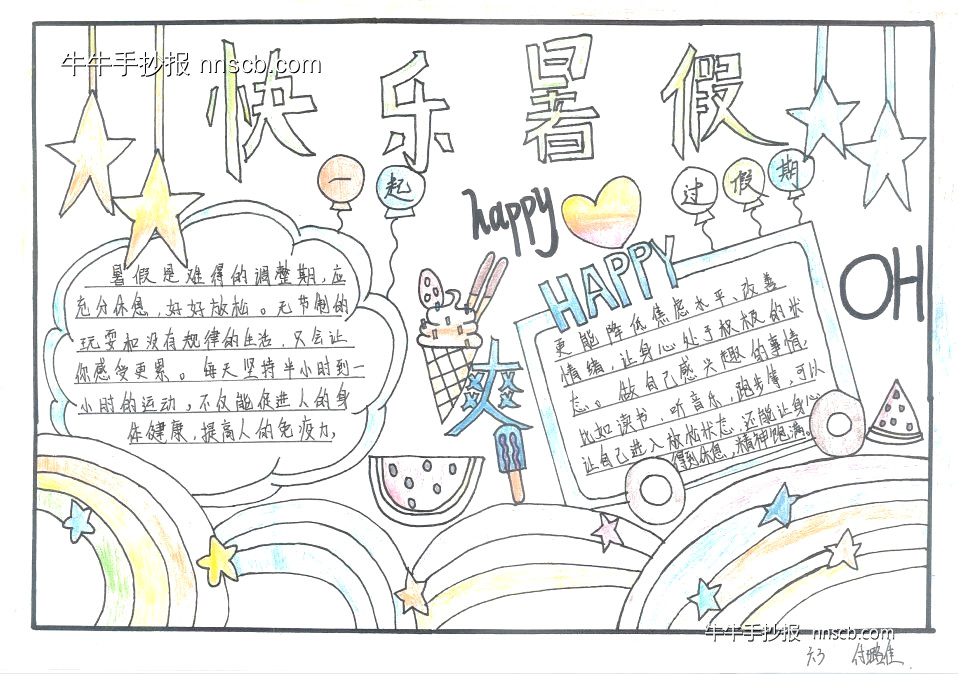 牛牛手抄报 nnscb.com
快乐暑假
一起
过假期
happy
HAPPY
OH
暑假是难得的调整期,应
充分休息,好好放松。无节制的
玩耍和没有规律的生活,只会让
你感受更累。每天坚持半小时到一
小时的运动,不仅能促进人的身
体健康,提高人的免疫力,
爽
更能降低焦虑水平、改善
情绪,让身心处于积极的状
态。做自己感兴趣的事情,
比如读书,听音乐,跑步等,可以
让自己进入放松状态,还能让身心
得到休息,精神饱满。
牛牛手抄报 nnscb.com
六3